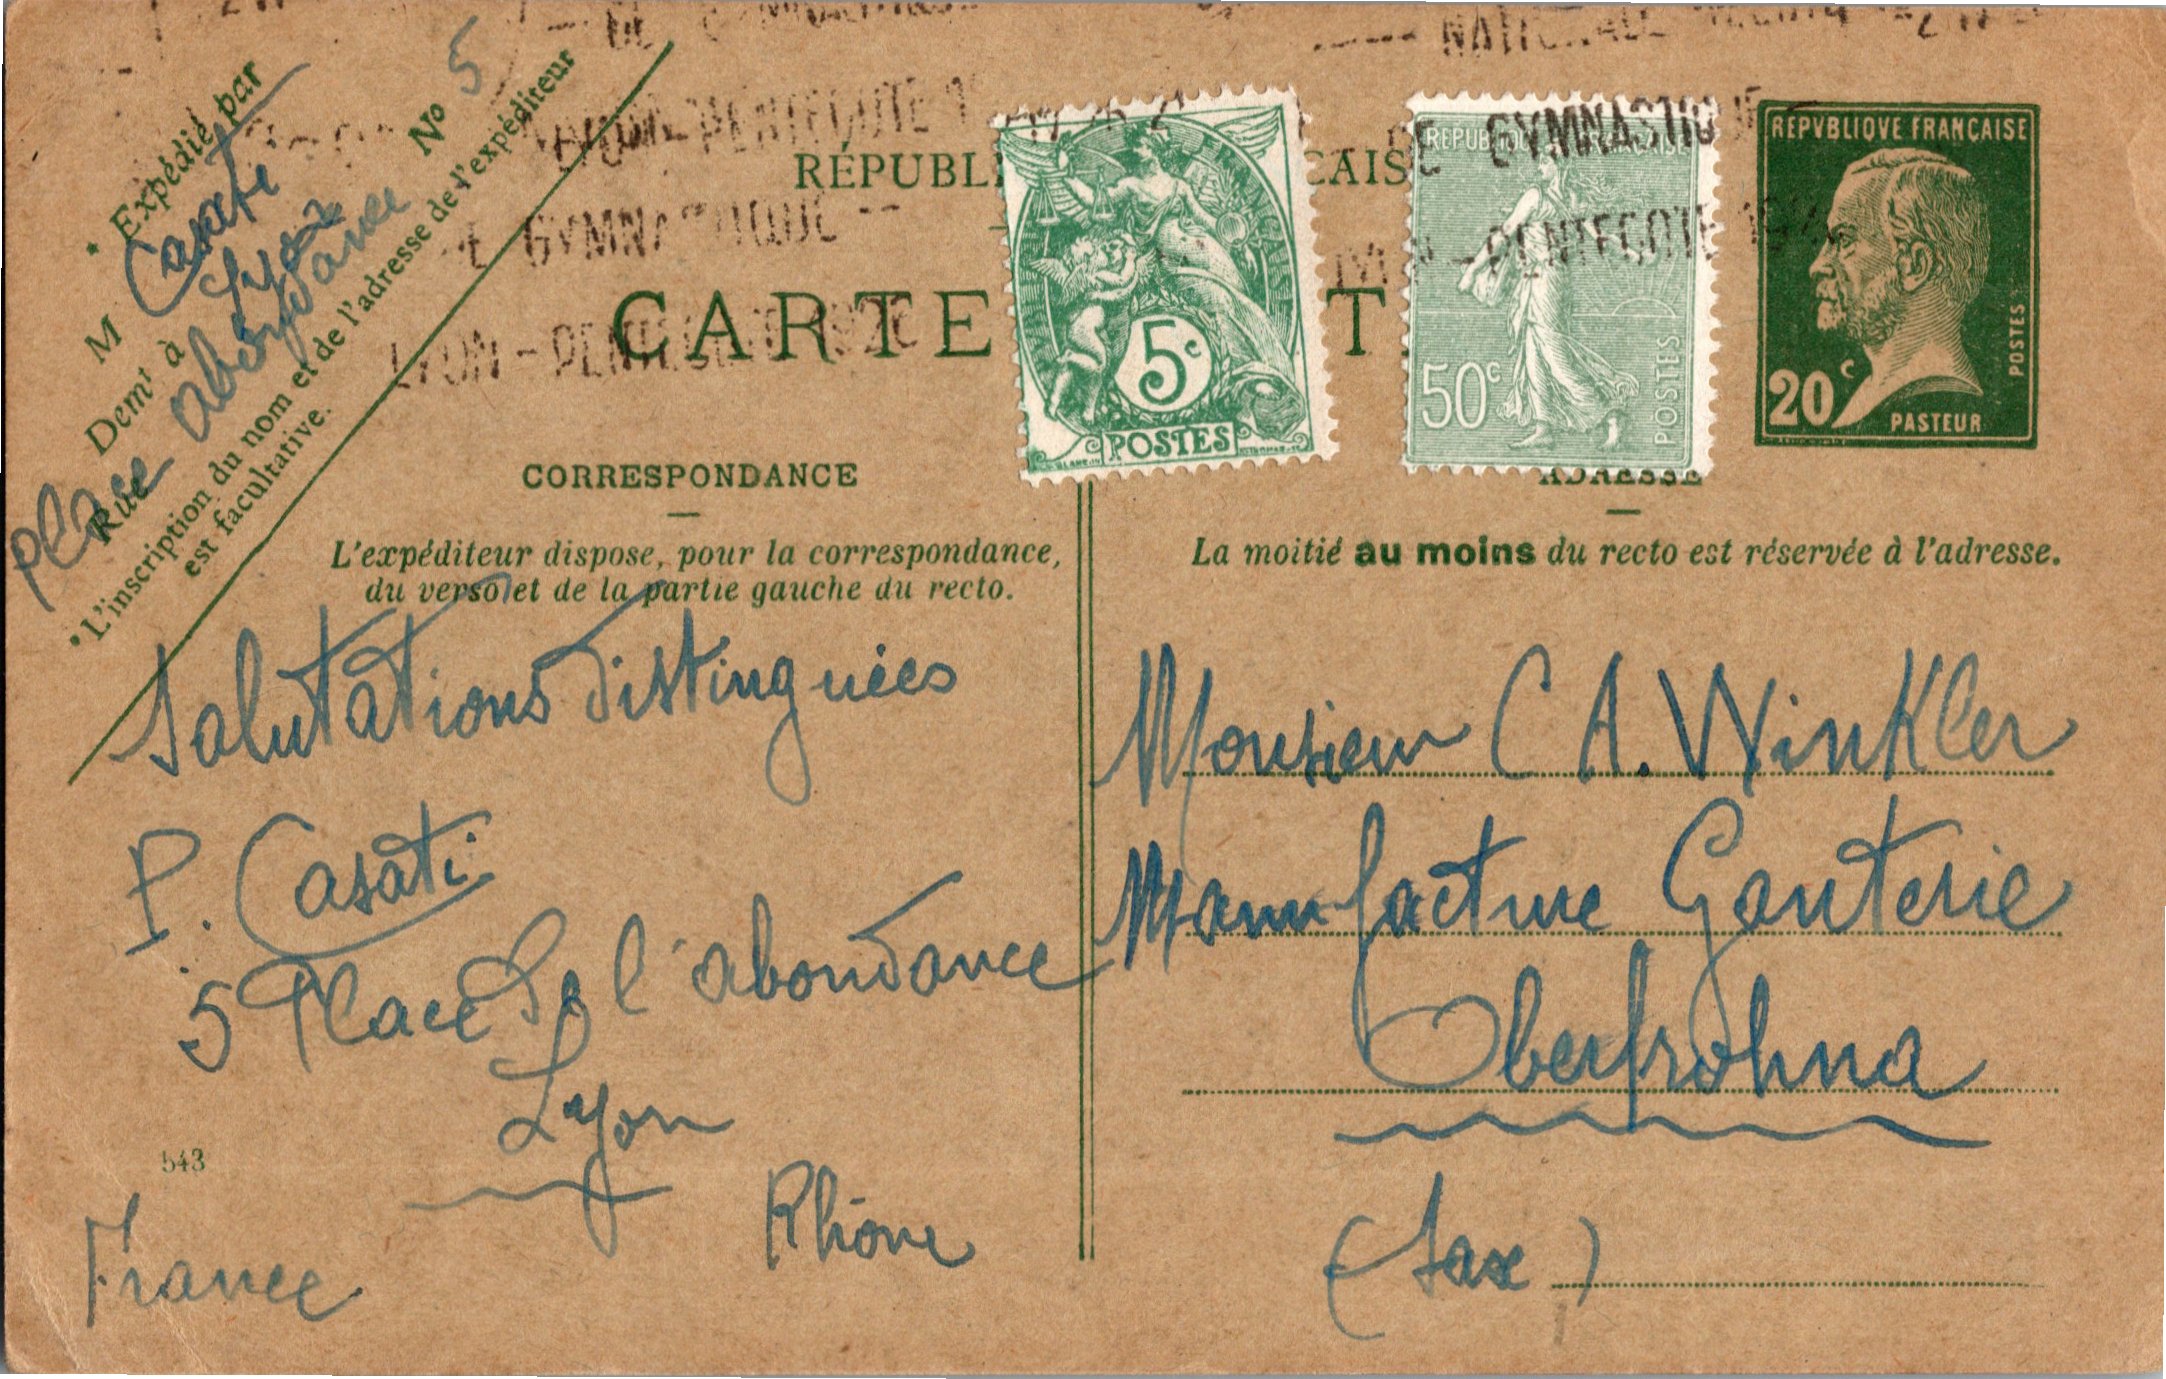 DE GYMNASTIQUE
NATIONALE
LYON-PENTECOTE 1926
DE GYMNASTIQUE
E GYMNASTIQUE --
- PENTECOTE 19
LYON - PENTECOTE 1926
* Expédié par
M Casati
Demt à Lyon
No 5
Rue place abondance
* L'inscription du nom et de l'adresse de l'expéditeur
est facultative.
RÉPUBLI CAIS
CARTE T
5c
POSTES
REPUBLIQUE FRANÇAISE
50c
POSTES
RÉPVBLIQVE FRANÇAISE
20c
PASTEUR
POSTES
CORRESPONDANCE
L'expéditeur dispose, pour la correspondance,
du verso et de la partie gauche du recto.
Salutations distinguées
P. Casati
5 Place de l'abondance
Lyon
Rhône
543
France
ADRESSE
La moitié au moins du recto est réservée à l'adresse.
Monsieur C A. Winkler
Manufacture Ganterie
Oberfrohna
(Saxe)